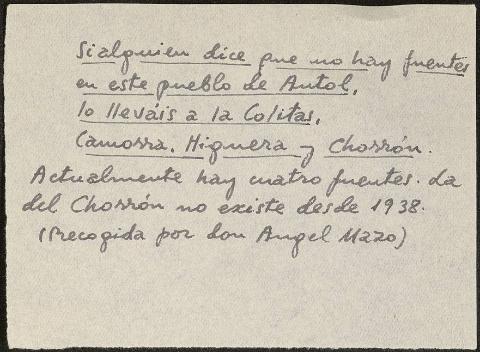 Si alguien dice que no hay fuentes
en este pueblo de Autol,
lo lleváis a la Colitas,
Camorra, Higuera y Chorrón.
Actualmente hay cuatro fuentes. La
del Chorrón no existe desde 1938.
(Recogida por don Angel Mazo)